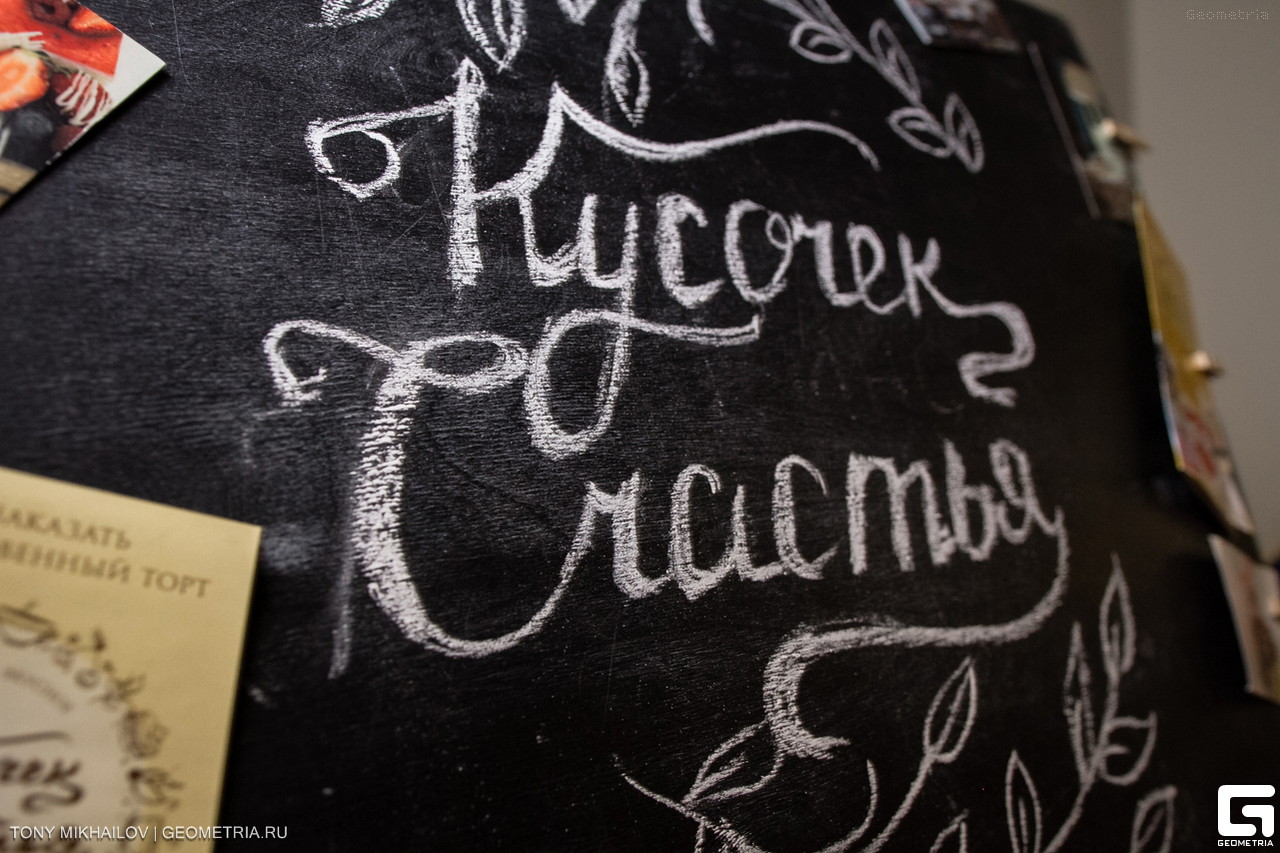 Geometria
Кусочек
Счастья
ЗАКАЗАТЬ
ТОРТ
TONY MIKHAILOV | GEOMETRIA.RU
GEOMETRIA